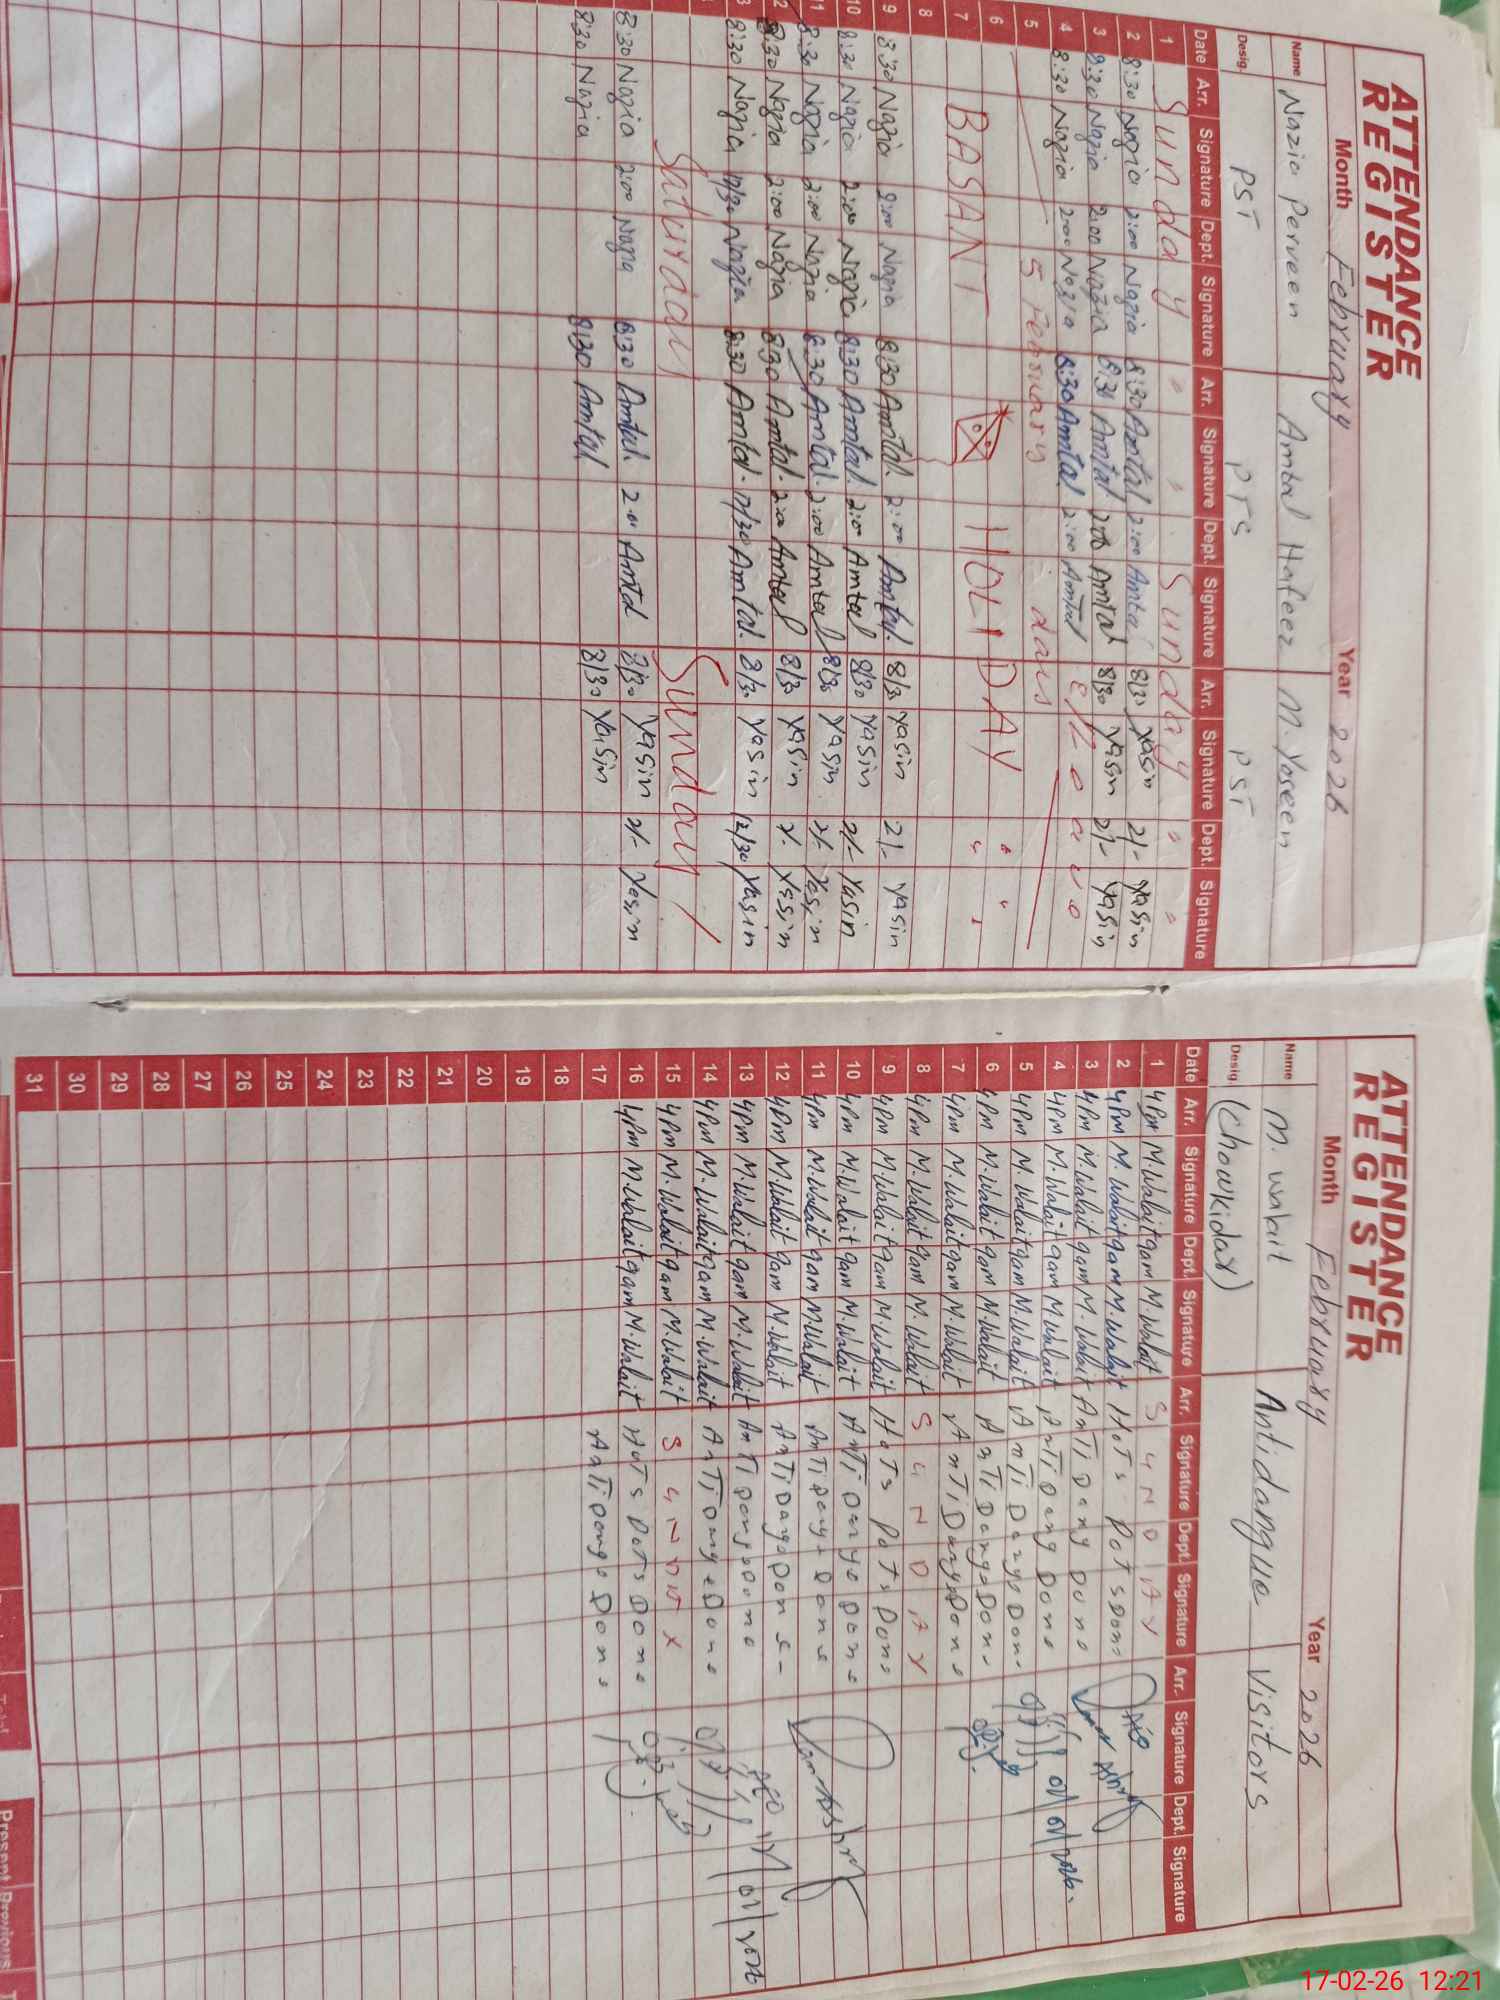 ATTENDANCE
REGISTER
Month February Year 2026
Name Nazia Perveen Amtal Hafeez M. Yaseen
Desig. PST PTS PST
Date Arr. Signature Dept. Signature Arr. Signature Dept. Signature Arr. Signature Dept. Signature
1 Sunday " " Sunday " "
2 8:30 Nazia 2:00 Nazia 8:30 Amtal 2:00 Amtal 8/30 Yasin 2/- Yasin
3 8:30 Nazia 2:00 Nazia 8:30 Amtal 2:00 Amtal 8/30 Yasin 2/- Yasin
4 8:30 Nazia 2:00 Nazia 8:30 Amtal 2:00 Amtal
5 5 February
6 BASANT HOLIDAY " "
7 " "
8
9 8:30 Nazia 2:00 Nazia 8:30 Amtal. 2:00 Amtal. 8/30 Yasin 2/- Yasin
10 8:30 Nazia 2:00 Nazia 8:30 Amtal. 2:00 Amtal 8/30 Yasin 2/- Yasin
11 8:30 Nazia 2:00 Nazia 8:30 Amtal. 2:00 Amtal 8/30 Yasin 2/- Yasin
8:30 Nazia 2:00 Nazia 8:30 Amtal. 2:00 Amtal 8/30 Yasin 2/- Yasin
8:30 Nazia 12/30 Nazia 8:30 Amtal. 12/30 Amtal. 8/30 Yasin 12/30 Yasin
Saturday Sunday
8:30 Nazia 2:00 Nazia 8:30 Amtul. 2:00 Amtal 8/30 Yasin 2/- Yasin
8:30 Nazia 8:30 Amtul 8/30 Yasin
ATTENDANCE
REGISTER
Month February Year 2026
Name M. Walait Antidangue Visitors
Desig. (Chowkidar)
Date Arr. Signature Dept. Signature Arr. Signature Dept. Signature Arr. Signature Dept. Signature
1 4Pm M.Walait 9am M.Walait SUNDAY
2 4Pm M.Walait 9am M.Walait HoTs Dots Done
3 4Pm M.Walait 9am M.Walait AnTi Dang Done
4 4Pm M.Walait 9am M.Walait AnTi Dang Done
5 4Pm M.Walait 9am M.Walait AnTi Dange Done
6 4Pm M.Walait 9am M.Walait AnTi Dange Done
7 4Pm M.Walait 9am M.Walait AnTi Dange Done
8 4Pm M.Walait 9am M.Walait SUNDAY
9 4Pm M.Walait 9am M.Walait HoTs DoTs Done
10 4Pm M.Walait 9am M.Walait AnTi Dange Done
11 4Pm M.Walait 9am M.Walait AnTi Dange Done
12 4Pm M.Walait 9am M.Walait AnTi Dange Done
13 4Pm M.Walait 9am M.Walait AnTi Dange Done
14 4Pm M.Walait 9am M.Walait AnTi Dange Done
15 4Pm M.Walait 9am M.Walait
16 4Pm M.Walait 9am M.Walait HoTs Dots Done
17 AnTi Dange Done
18
19
20
21
22
23
24
25
26
27
28
29
30
31
Total Present Previous
17-02-26 12:21